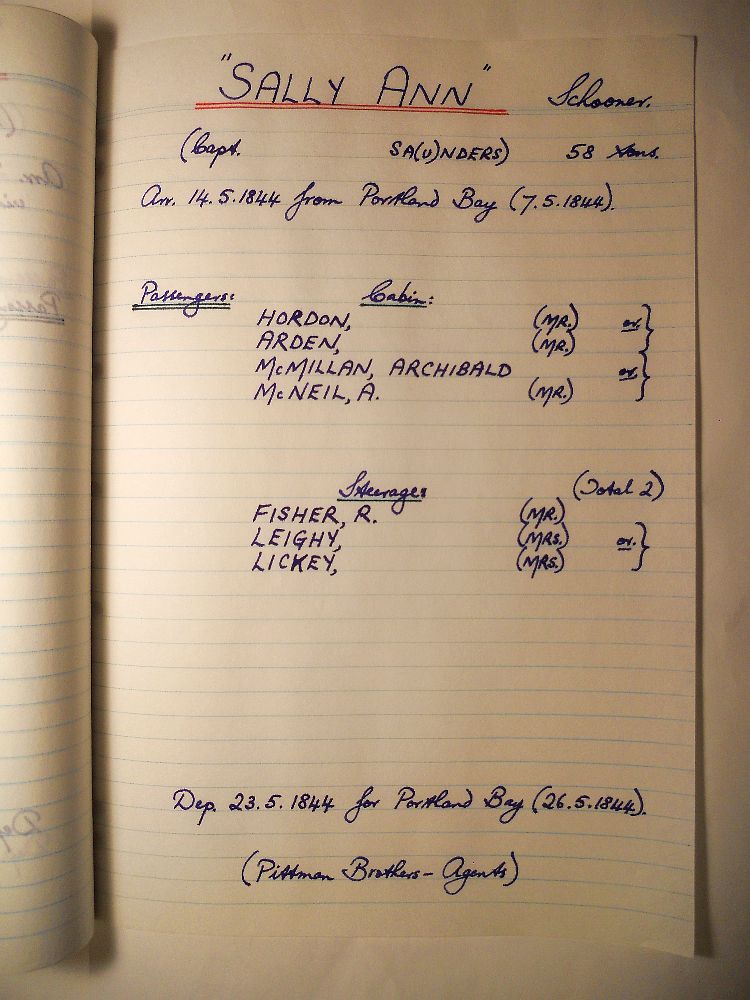 "SALLY ANN" Schooner.
(Capt. SA(U)NDERS) 58 tons.
Arr. 14.5.1844 from Portland Bay (7.5.1844).
Passengers: Cabin:
HORDON, (MR.) or }
ARDEN, (MR.)
McMILLAN, ARCHIBALD or }
McNEIL, A. (MR.)
Steerage: (Total 2)
FISHER, R. (MR.)
LEIGHY, (MRS.) or }
LICKEY, (MRS.)
Dep. 23.5.1844 for Portland Bay (26.5.1844).
(Pittman Brothers - Agents)